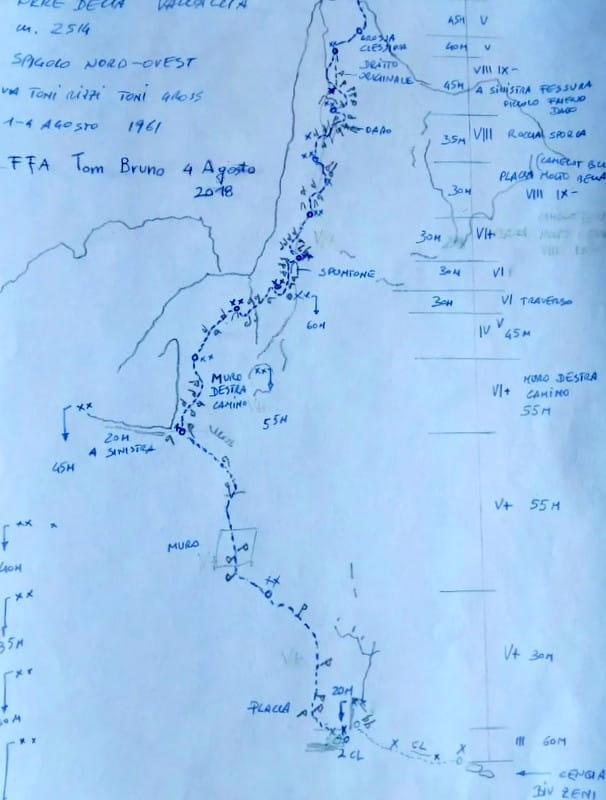 m. 2514
SPIGOLO NORD-OVEST
VIA TONI RIZZI TONI GROSS
1-4 AGOSTO 1961
FFA Tom Bruno 4 Agosto
2018
GROSSA
CLESSIDRA
DRITTO
ORIGINALE
DADO
SPUNTONE
60M
MURO
DESTRA
CAMINO
55M
20M
A SINISTRA
45M
MURO
PLACCA
20M
2 CL
CL
40M
35M
45M V
40M V
VIII IX-
45M A SINISTRA FESSURA
PICCOLO
DADO
35M VIII ROCCIA SPORCA
PLACCA MOLTO BELLA
30M VIII IX-
30M VI+
30M VI
30M VI TRAVERSO
IV V 45M
VI+ MURO DESTRA
CAMINO
55M
V+ 55M
V+ 30M
III 60M
CENGIA
DIV ZENI